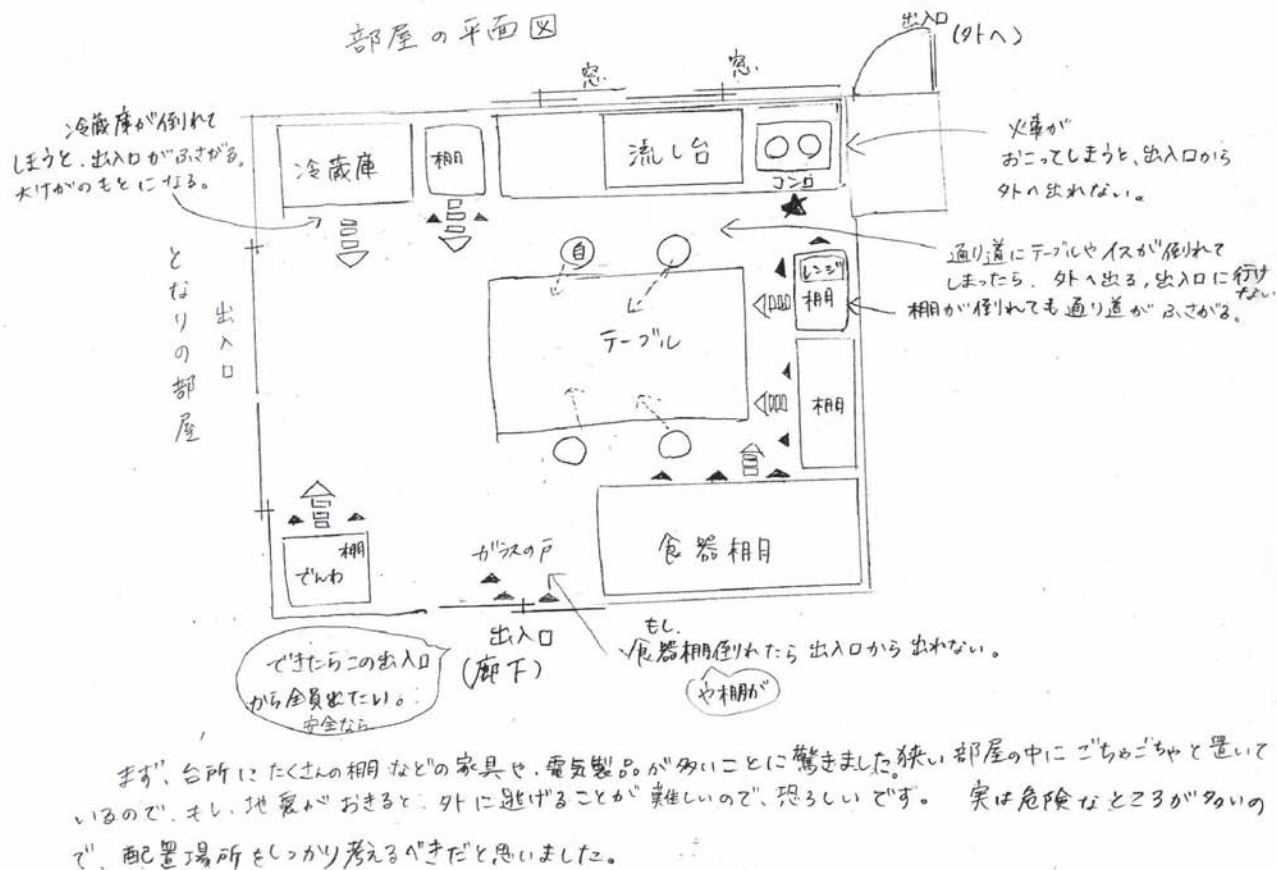 部屋の平面図
出入口
(外へ)
窓
窓
冷蔵庫が倒れて
しまうと、出入口がふさがる。
大けがのもとになる。
冷蔵庫
棚
流し台
コンロ
火事が
おこってしまうと、出入口から
外へ出れない。
通り道にテーブルやイスが倒れて
しまったら、外へ出る,出入口に行け
ない
棚が倒れても通り道がふさがる。
となりの部屋
出入口
自
テーブル
レンジ
棚
棚
食器棚
棚
でんわ
ガラスの戸
出入口
(廊下)
できたらこの出入口
から全員出たい。
安全なら
もし、
食器棚倒れたら出入口から出れない。
や棚が
まず、台所にたくさんの棚などの家具や、電気製品が多いことに驚きました。狭い部屋の中にごちゃごちゃと置いて
いるので、もし、地震がおきると、外に逃げることが難しいので、恐ろしいです。 実は危険なところが多いの
で、配置場所をしっかり考えるべきだと思いました。